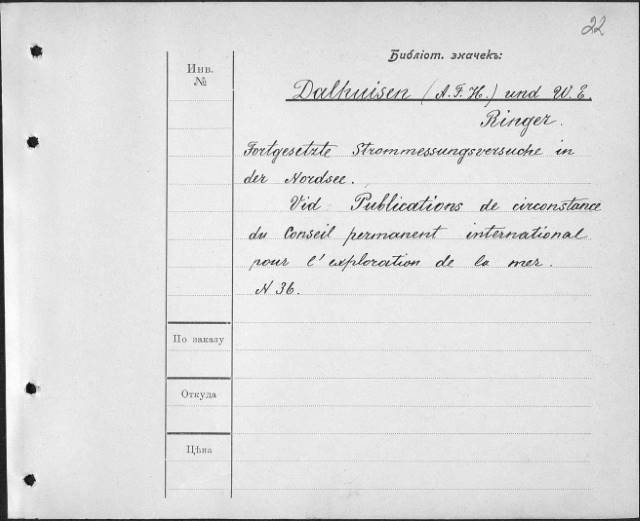 22
Библіот. значекъ:
Инв.
№
Dalhuisen (A. F. H.) und W. E.
Ringer.
Fortgesetzte Strommessungsversuche in
der Nordsee.
Vid Publications de circonstance
du Conseil permanent international
pour l'exploration de la mer.
N 36.
По заказу
Откуда
Цѣна